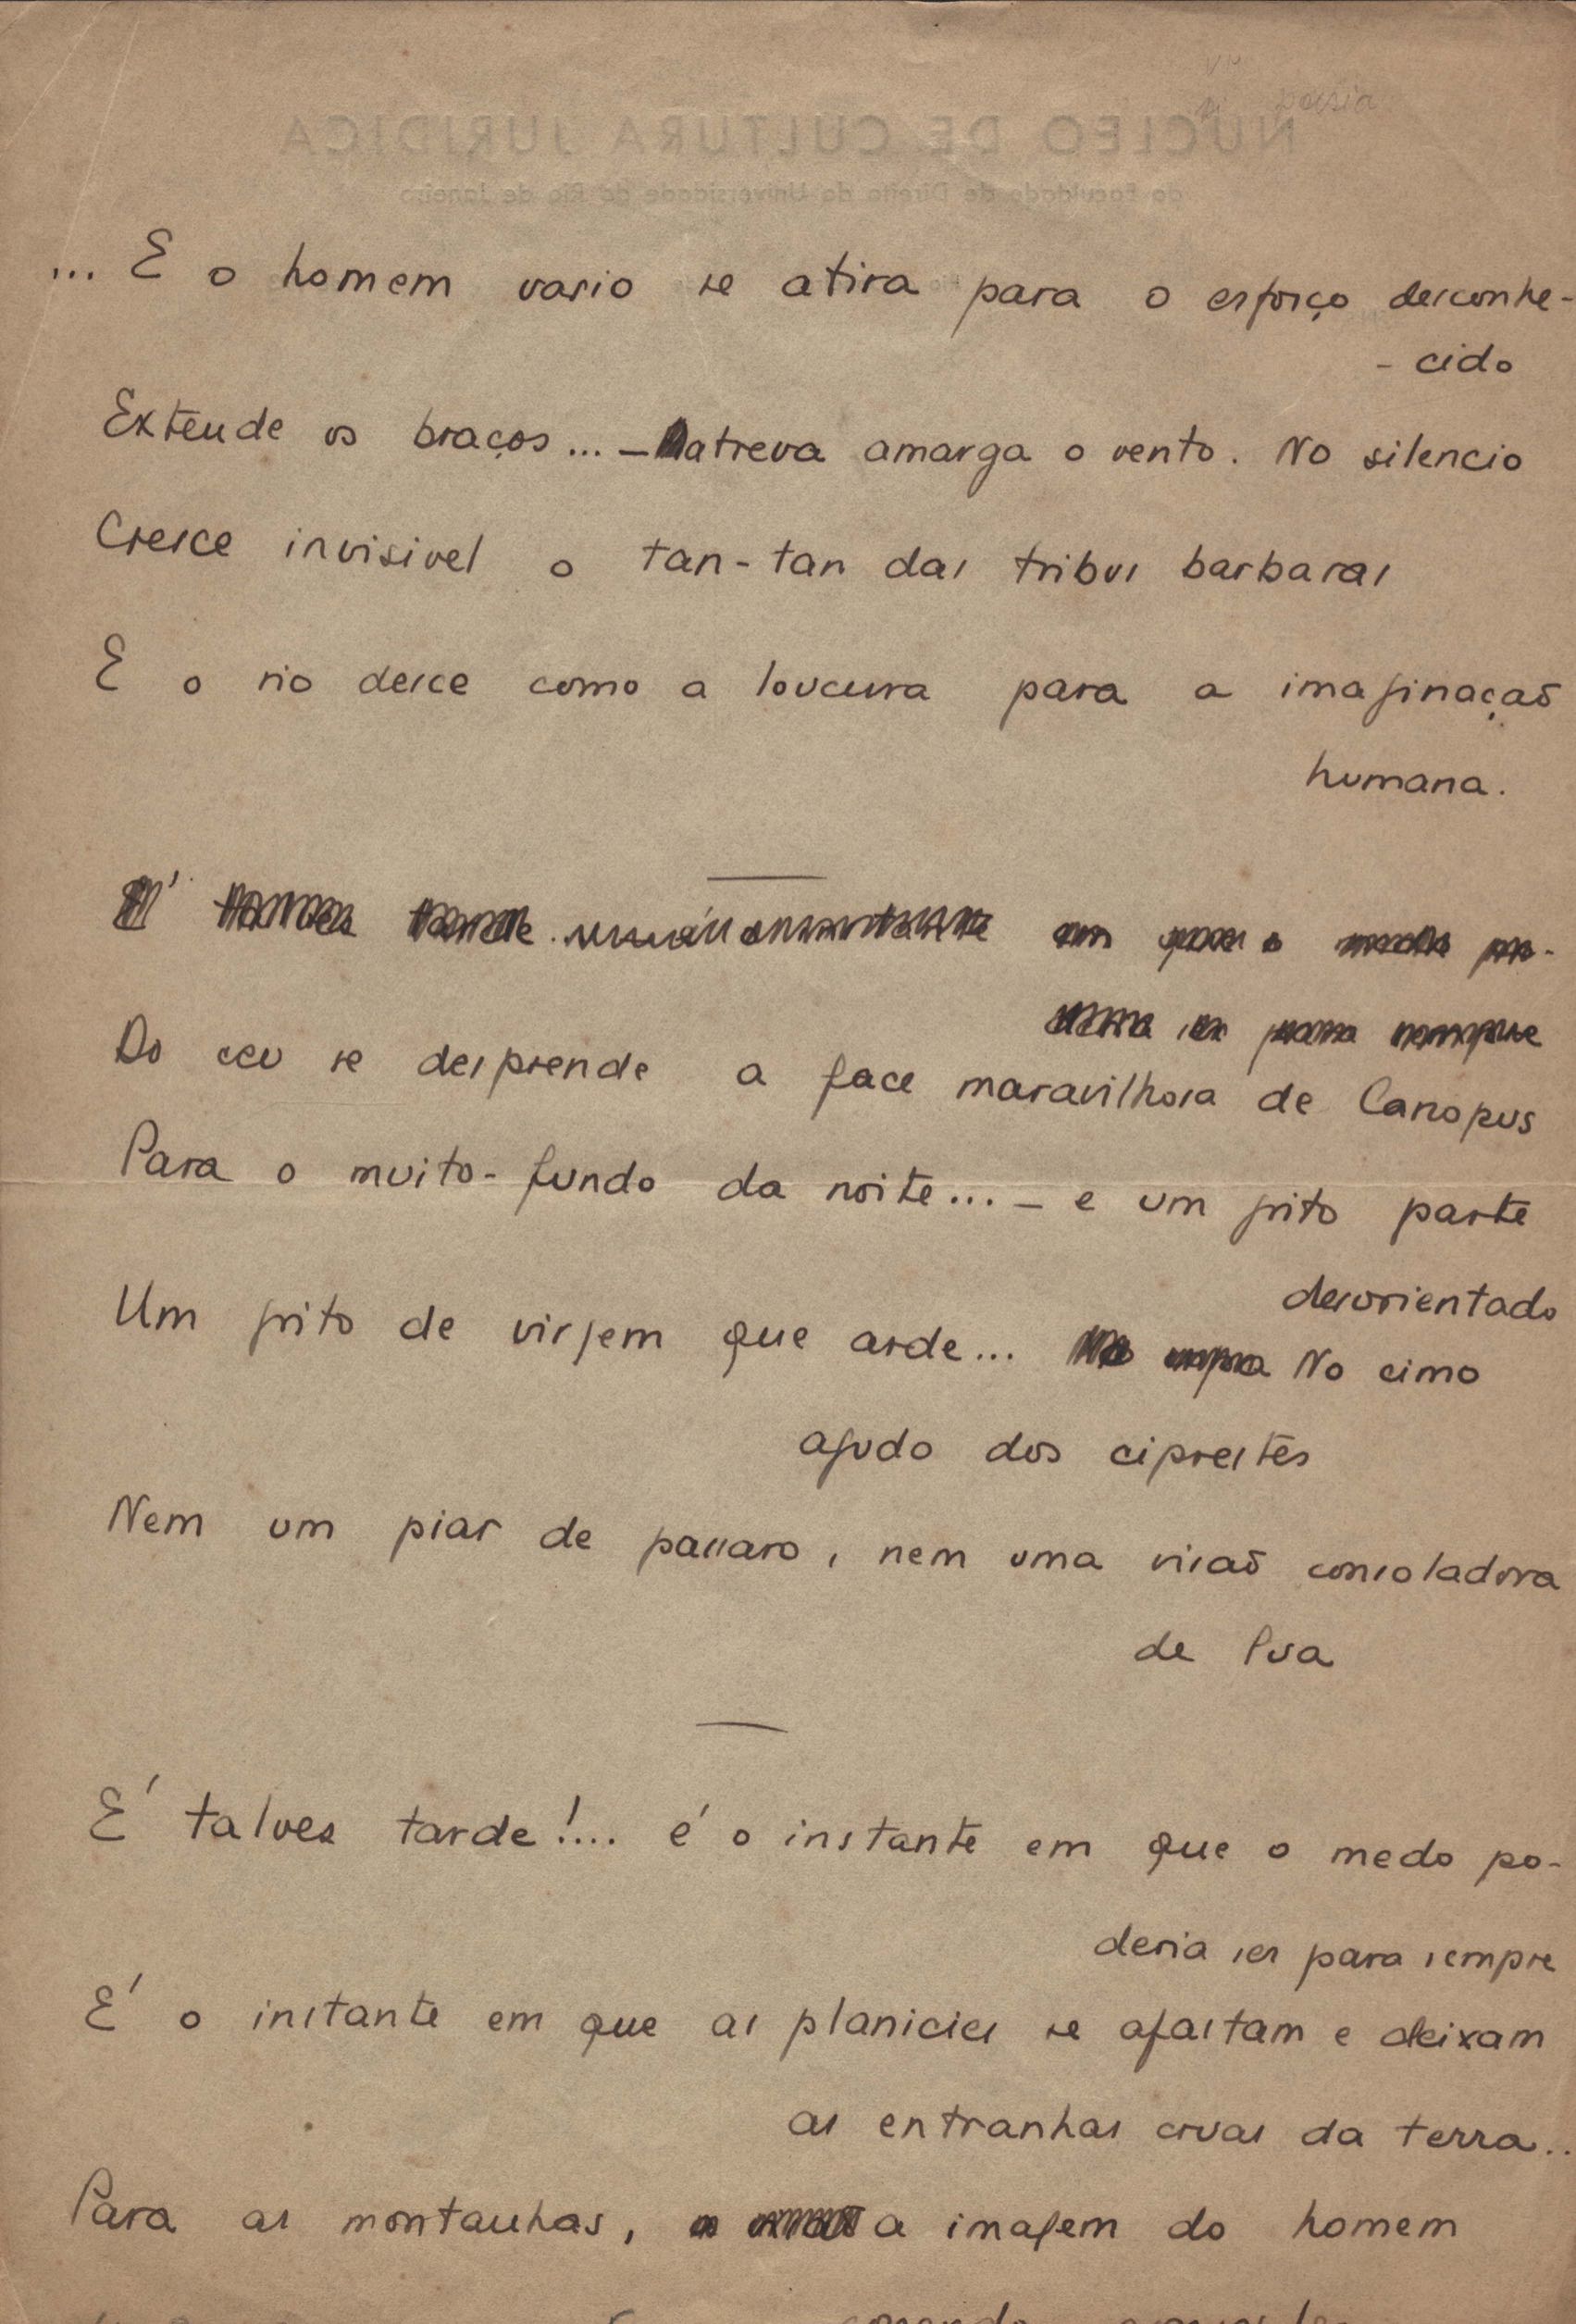 poesia
NUCLEO DE CULTURA JURIDICA
da Faculdade de Direito da Universidade do Rio de Janeiro
... E o homem vario se atira para o esforço desconhe-
- cido
Extende os braços... — a treva amarga o vento. No silencio
Cresce invisivel o tan-tan das tribus barbaras
E o rio desce como a loucura para a imaginação
humana.
Do ceu se desprende a face maravilhosa de Canopus
Para o muito-fundo da noite... — e um grito parte
desorientado
Um grito de virgem que arde... No cimo
agudo dos ciprestes
Nem um piar de passaro, nem uma visão consoladora
de lua
E' talves tarde!... é o instante em que o medo po-
deria ser para sempre
E' o instante em que as planicies se afastam e deixam
as entranhas cruas da terra..
Para as montanhas, a imagem do homem